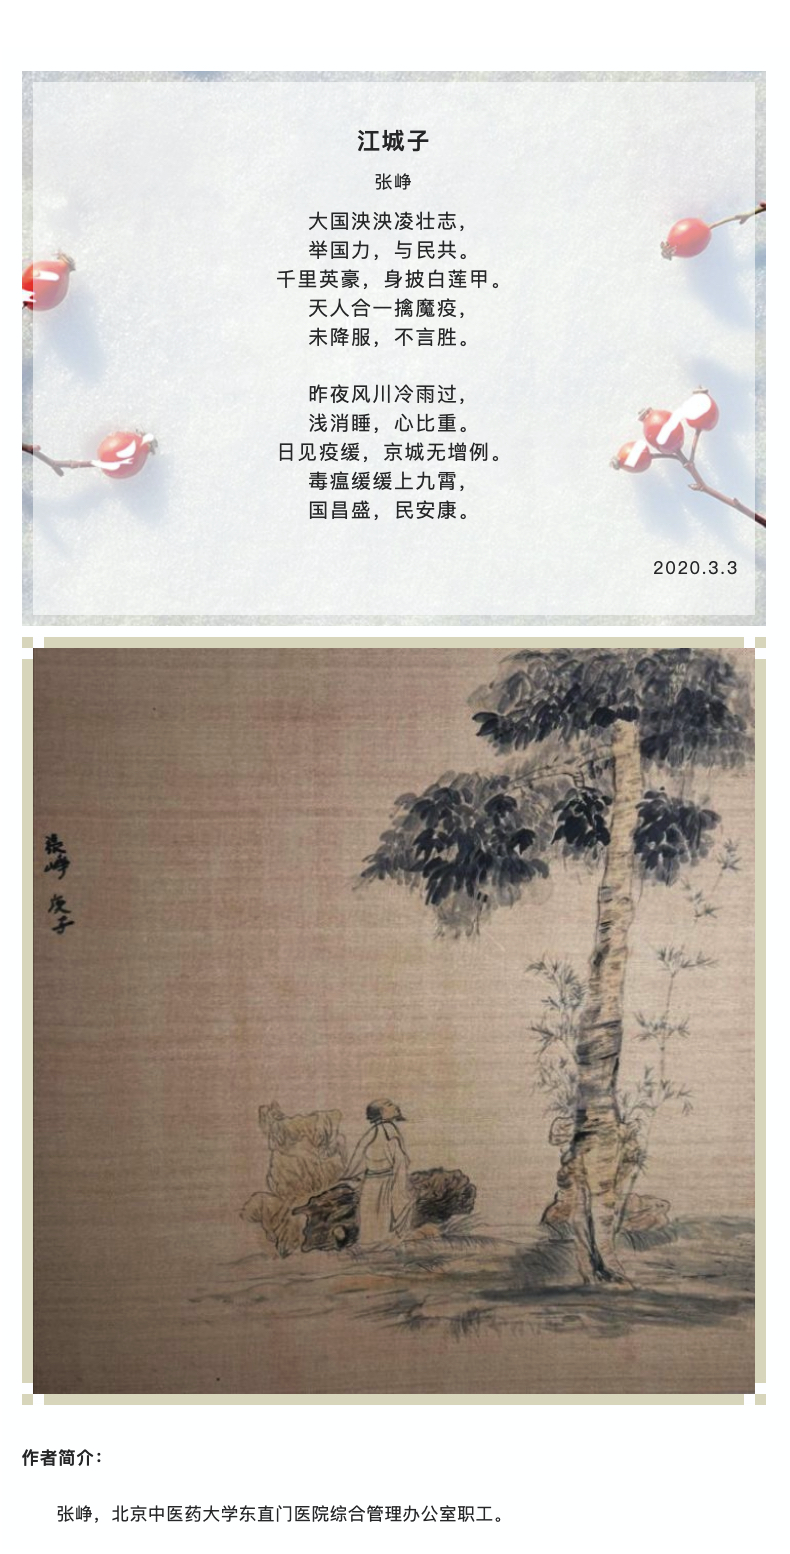 江城子
张峥
大国泱泱凌壮志，
举国力，与民共。
千里英豪，身披白莲甲。
天人合一擒魔疫，
未降服，不言胜。
昨夜风川冷雨过，
浅消睡，心比重。
日见疫缓，京城无增例。
毒瘟缓缓上九霄，
国昌盛，民安康。
2020.3.3
張峥
庚子
作者简介：
张峥，北京中医药大学东直门医院综合管理办公室职工。